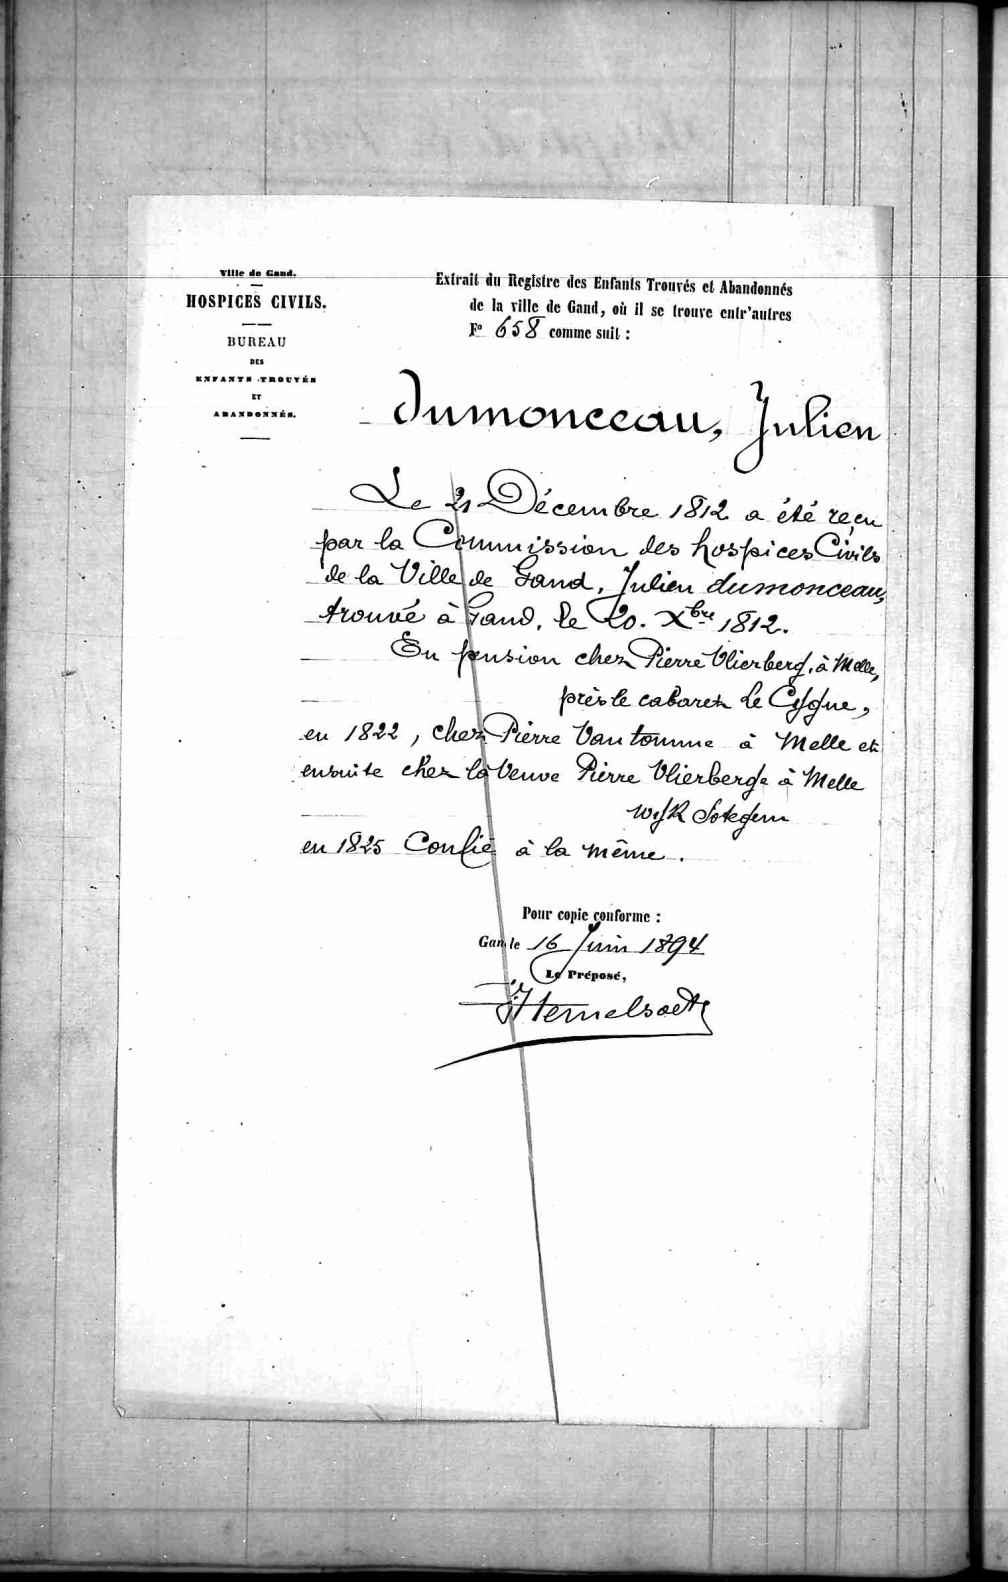 Ville de Gand.
HOSPICES CIVILS.
BUREAU
DES
ENFANTS TROUVÉS
ET
ABANDONNÉS.
Extrait du Registre des Enfants Trouvés et Abandonnés
de la ville de Gand, où il se trouve entr'autres
Fº 658 comme suit :
Dumonceau, Julien
Le 21 Décembre 1812 a été reçu
par la Commission des hospices Civils
de la Ville de Gand, Julien dumonceau,
trouvé à Gand, le 20. Xbre 1812.
En pension chez Pierre Vlierberg, à Melle,
près le cabaret le Cygne,
en 1822, chez Pierre Vantomme à Melle et
ensuite chez la Veuve Pierre Vlierberge à Melle
wyk Sotegem
en 1825 Confié à la même.
Pour copie conforme :
Gand le 16 Juin 1894
Le Préposé,